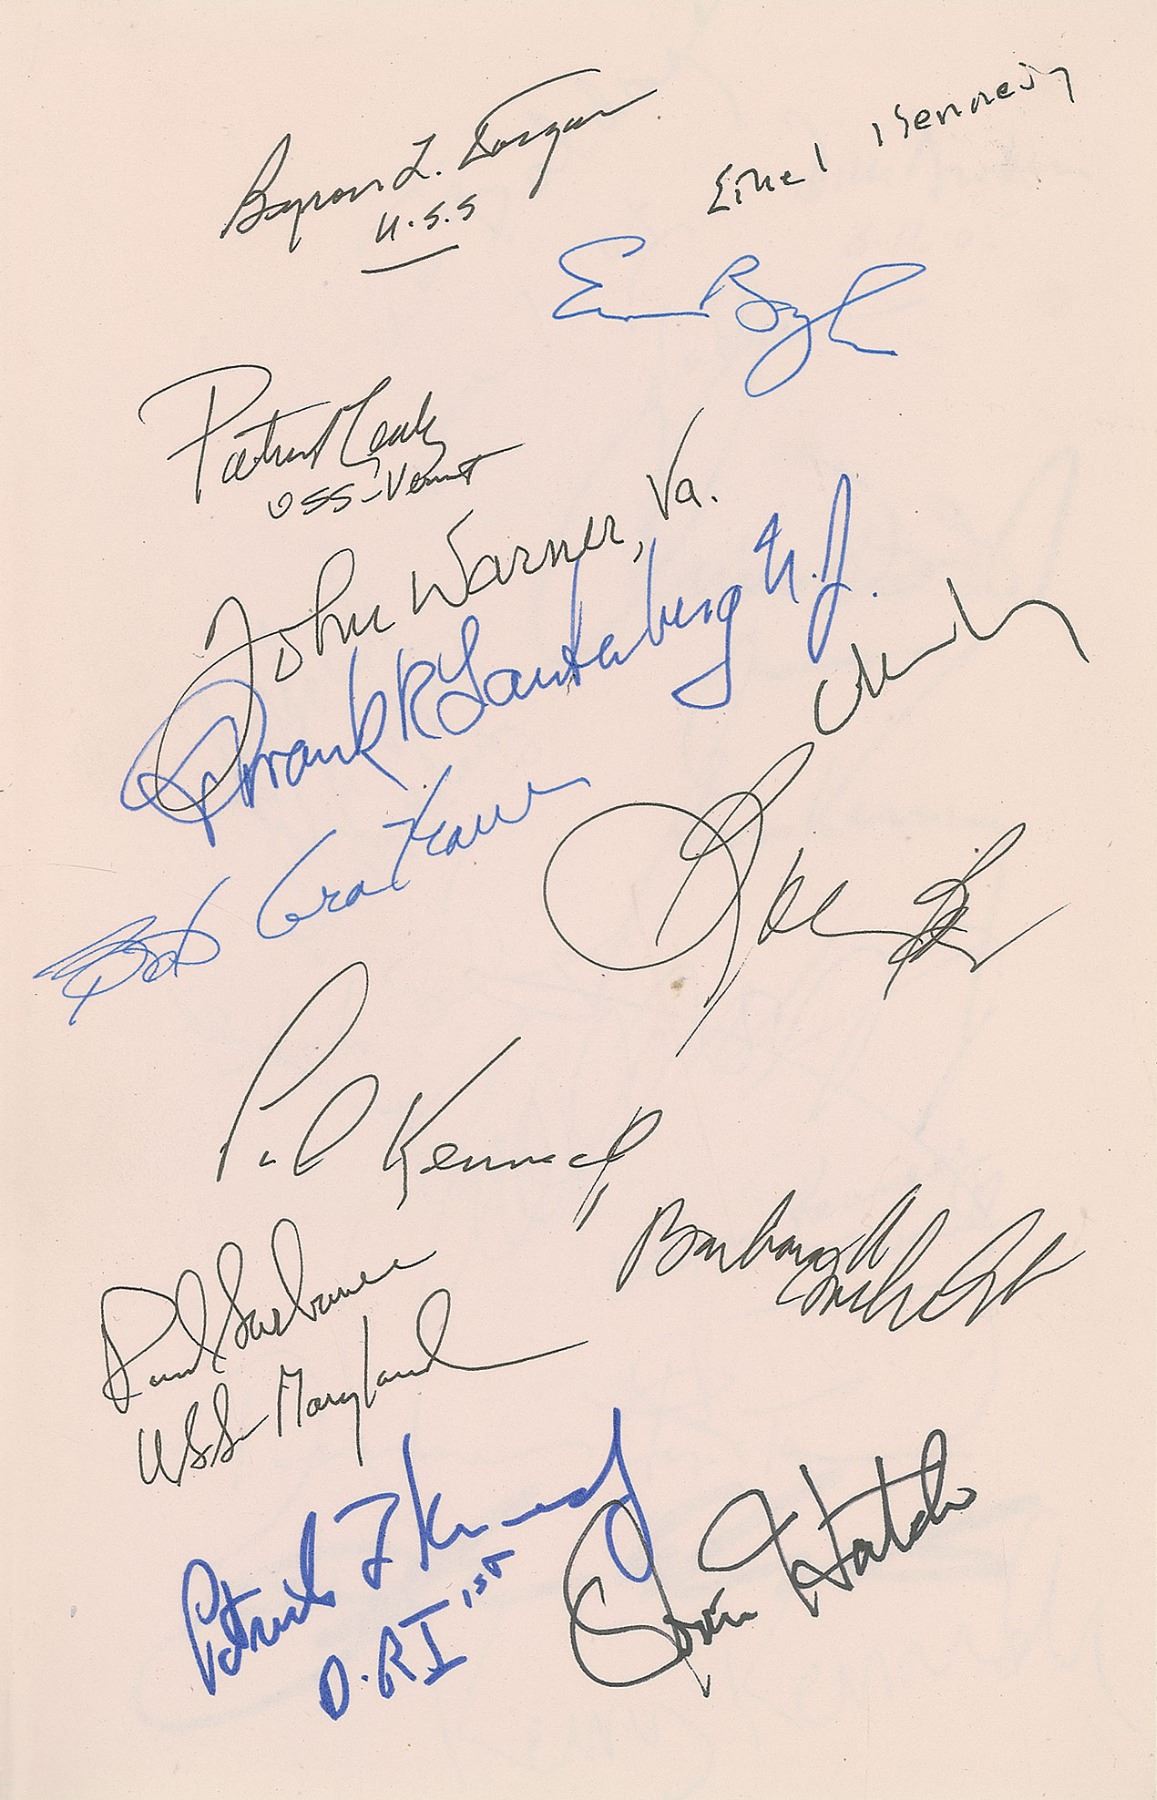 Byron L. Dorgan
U.S.S
Ethel Kennedy
Evan Bayh
Patrick Leahy
USS-Vermont
John Warner, Va.
Frank R Lautenberg N.J.
Bob Graham
Kennedy
Paul Sarbanes
USS-Maryland
Barbara A Mikulski
Patrick J Kennedy
D-RI 1st
Orrin Hatch